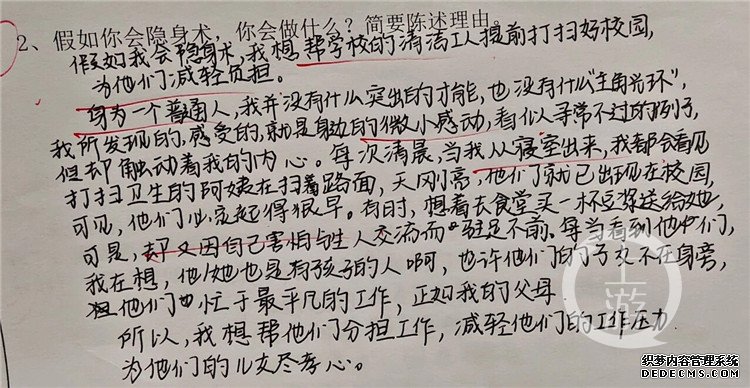 2、假如你会隐身术，你会做什么？简要陈述理由。
假如我会隐身术，我想帮学校的清洁工人提前打扫好校园，
为他们减轻负担。
身为一个普通人，我并没有什么突出的才能，也没有什么“主角光环”，
我所发现的，感受的，就是身边的微小感动，看似人寻常不过的例子，
但却触动着我的内心。每次清晨，当我从寝室出来，我都会看见
打扫卫生的阿姨在扫着路面，天刚亮，他们就已出现在校园，
可见，他们必定起得很早。有时，想着去食堂买一杯豆浆送给她，
可是，却又因自己害怕与生人交流而驻足不前。每当看到他们，
我在想，他/她也是有孩子的人啊，也许他们的子女不在身旁，
他们也忙于最平凡的工作，正如我的父母．
所以，我想帮他们分担工作，减轻他们的工作压力．
为他们的儿女尽孝心。
上游
织梦内容管理系统
DEDECMS.COM